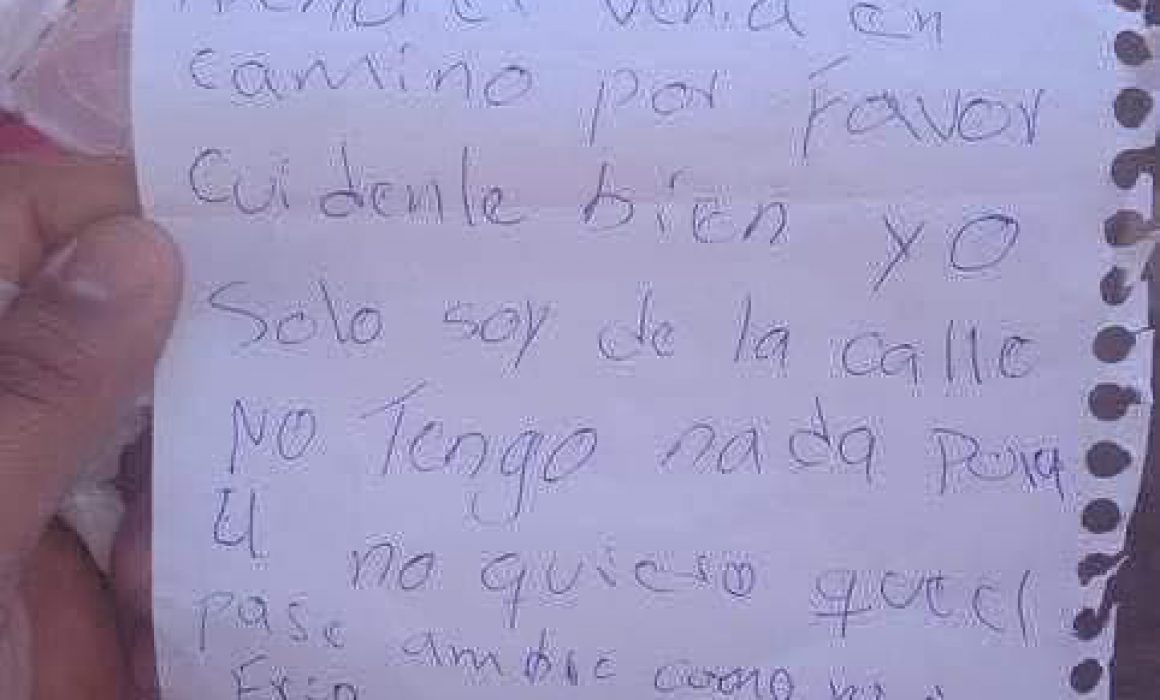 venia en
camino por Favor
Cuidenle bien yo
Solo soy de la calle
NO Tengo nada para
el no quiero que el
pase ambre como yo
Frio